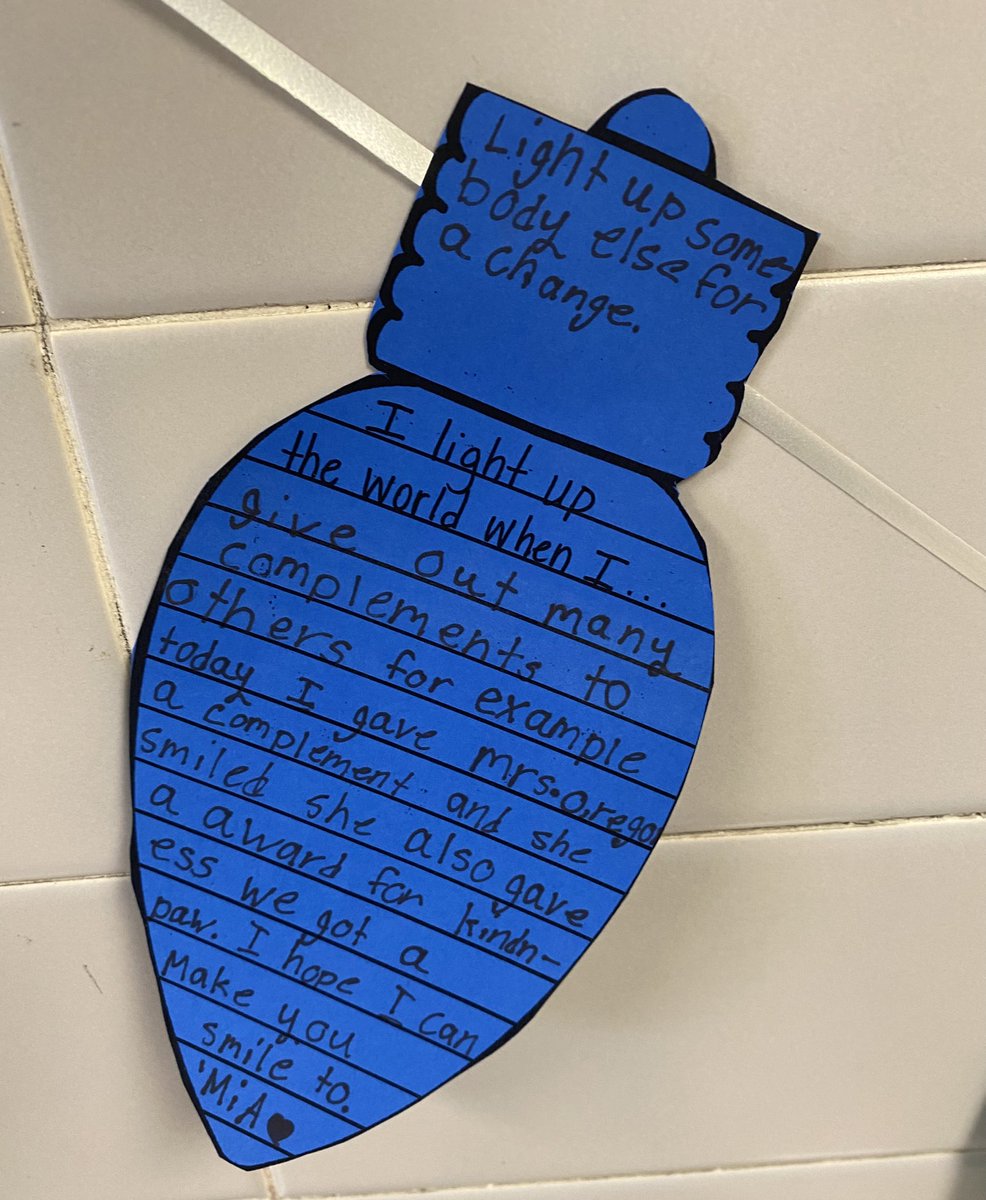 Light up some-
body else for
a change.
I light up
the world when I...
give out many
complements to
others for example
today I gave mrs.O,regan
a complement and she
smiled she also gave
a award for kindn-
ess we got a
paw. I hope I can
Make you
smile to.
'MiA♥